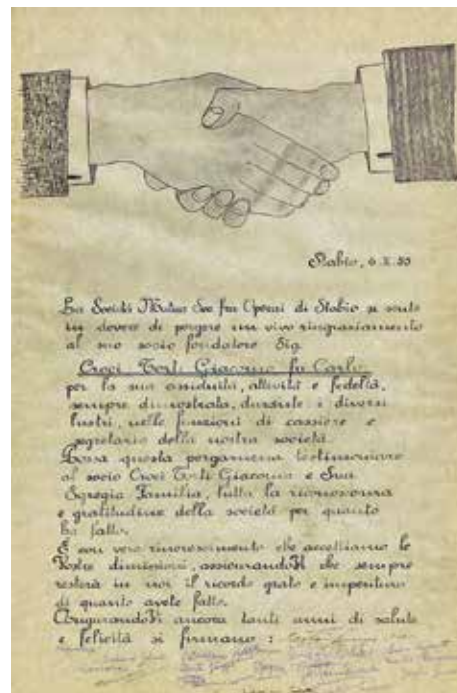 Stabio, 6.X.50
La Società Mutuo Soc fra Operai di Stabio si sente
in dovere di porgere un vivo ringraziamento
al suo socio fondatore Sig.
Croci Torti Giacomo fu Carlo
per la sua assiduità, attività e fedeltà,
sempre dimostrata, durante i diversi
lustri, nelle funzioni di cassiere e
segretario della nostra società.
Possa questa pergamena testimoniare
al socio Croci Torti Giacomo e Sua
Egregia Famiglia, tutta la riconoscenza
e gratitudine della società per quanto
ha fatto.
È con vero rincrescimento che accettiamo le
Vostre dimissioni, assicurandoVi che sempre
resterà in noi il ricordo grato e imperituro
di quanto avete fatto.
AugurandoVi ancora tanti anni di salute
e felicità si firmano :